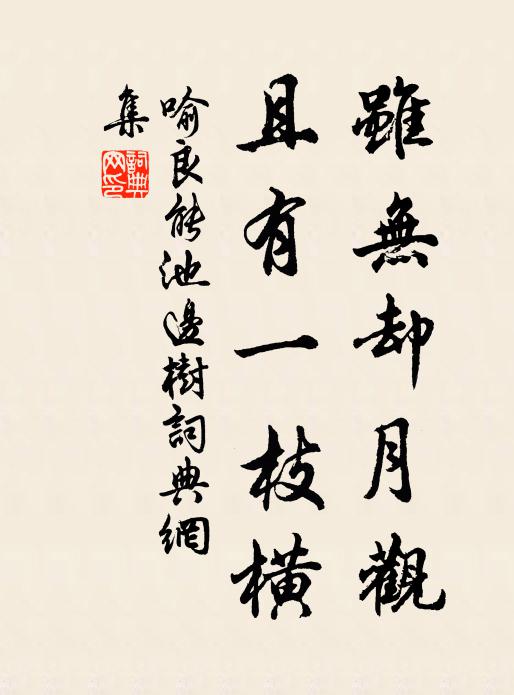 雖無却月觀
且有一枝橫
喻良能池邊樹詞典網
集
詞典
网印